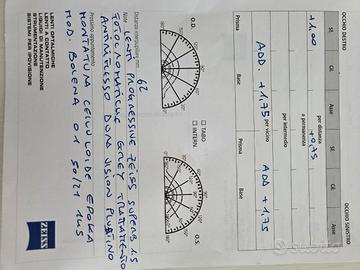 OCCHIO DESTRO OCCHIO SINISTRO
Sf. Cil. Asse Sf. Cil. Asse
+1,00 per distanza +0,75
a permanenza
per intermedio
ADD. +1,75 per vicino ADD +1,75
Prisma Base Prisma Base
O.D. O.S.
TABO
INTERN.
Distanza interpupillare mm. 62
Note: LENTI PROGRESSIVE ZEISS SUPERB 1.5
FOTOCROMATICHE GREY TRATTAMENTO
ANTIRIFLESSO DURA VISION PLATINO
Prossimo appuntamento
MONTATURA CELLULOIDE EPOKA
MOD. BOLENA 01 50/21 145
LENTI OFTALMICHE
LENTI A CONTATTO
LIQUIDI DI MANUTENZIONE
STRUMENTAZIONE
SISTEMI PER IPOVISIONE
ZEISS
subito